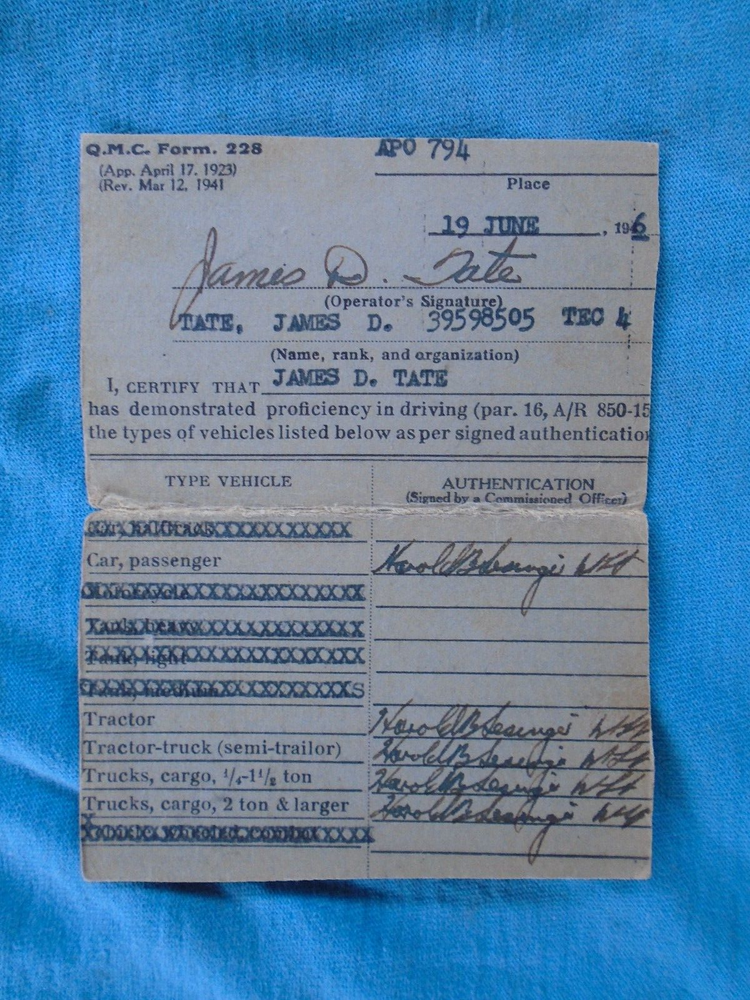 Q.M.C. Form. 228
(App. April 17. 1923)
(Rev. Mar 12, 1941
APO 794
Place
19 JUNE , 1946
James D. Tate
(Operator's Signature)
TATE, JAMES D. 39598505 TEC 4
(Name, rank, and organization)
I, CERTIFY THAT JAMES D. TATE
has demonstrated proficiency in driving (par. 16, A/R 850-15
the types of vehicles listed below as per signed authentication
TYPE VEHICLE
AUTHENTICATION
(Signed by a Commissioned Officer)
Car, halftrack
Car, passenger Harold B
Motorcycle
Tank, heavy
Tank, light
Tank, medium
Tractor Harold B
Tractor-truck (semi-trailor) Harold B
Trucks, cargo, 1/4-1 1/2 ton Harold B
Trucks, cargo, 2 ton & larger Harold B